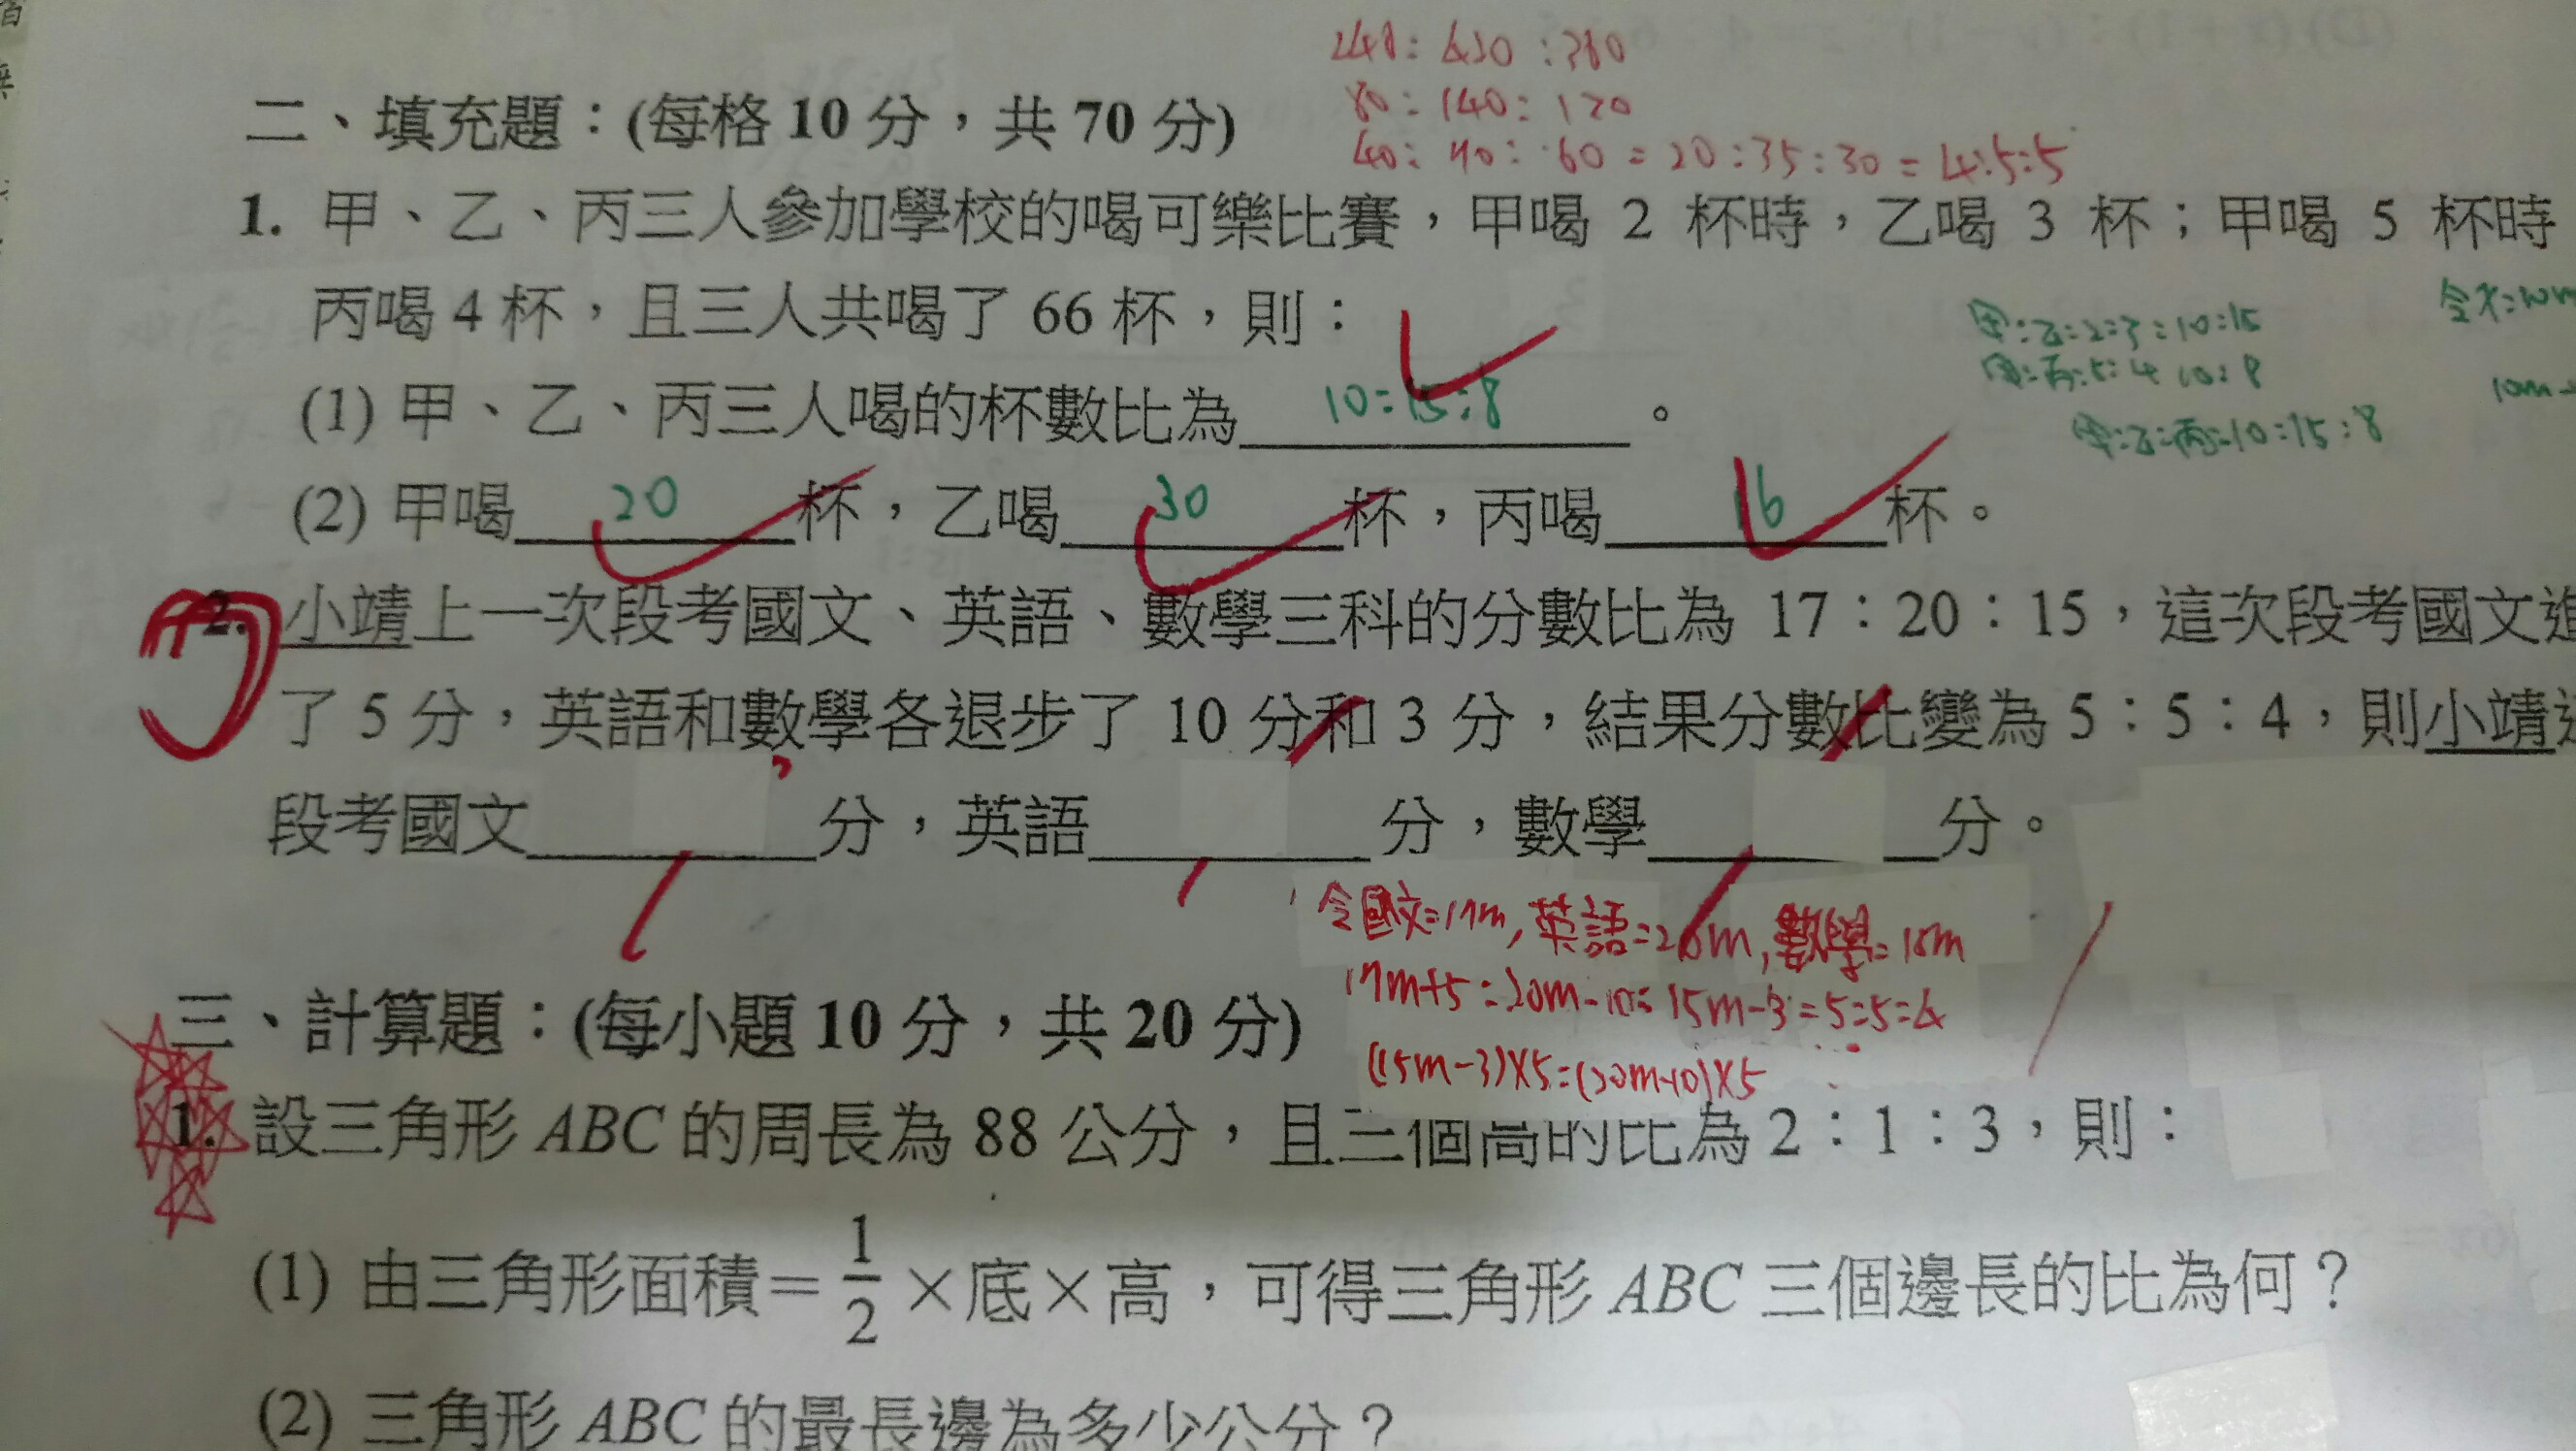 248:430:380
80:140:120
40:70:60=20:35:30=4:5:5
二、填充題：(每格 10 分，共 70 分)
1. 甲、乙、丙三人參加學校的喝可樂比賽，甲喝 2 杯時，乙喝 3 杯；甲喝 5 杯時
丙喝 4 杯，且三人共喝了 66 杯，則：
甲:乙=2:3=10:15
甲:丙=5:4 10:8
甲:乙:丙=10:15:8
(1) 甲、乙、丙三人喝的杯數比為 10:15:8 。
(2) 甲喝 20 杯，乙喝 30 杯，丙喝 16 杯。
2. 小靖上一次段考國文、英語、數學三科的分數比為 17：20：15，這次段考國文進
了 5 分，英語和數學各退步了 10 分和 3 分，結果分數比變為 5：5：4，則小靖這
段考國文 分，英語 分，數學 分。
令國文=17m, 英語=20m, 數學=15m
17m+5:20m-10:15m-3=5:5:4
(15m-3)×5=(20m-10)×5
三、計算題：(每小題 10 分，共 20 分)
1. 設三角形 ABC 的周長為 88 公分，且三個高的比為 2：1：3，則：
(1) 由三角形面積＝1/2×底×高，可得三角形 ABC 三個邊長的比為何？
(2) 三角形 ABC 的最長邊為多少公分？